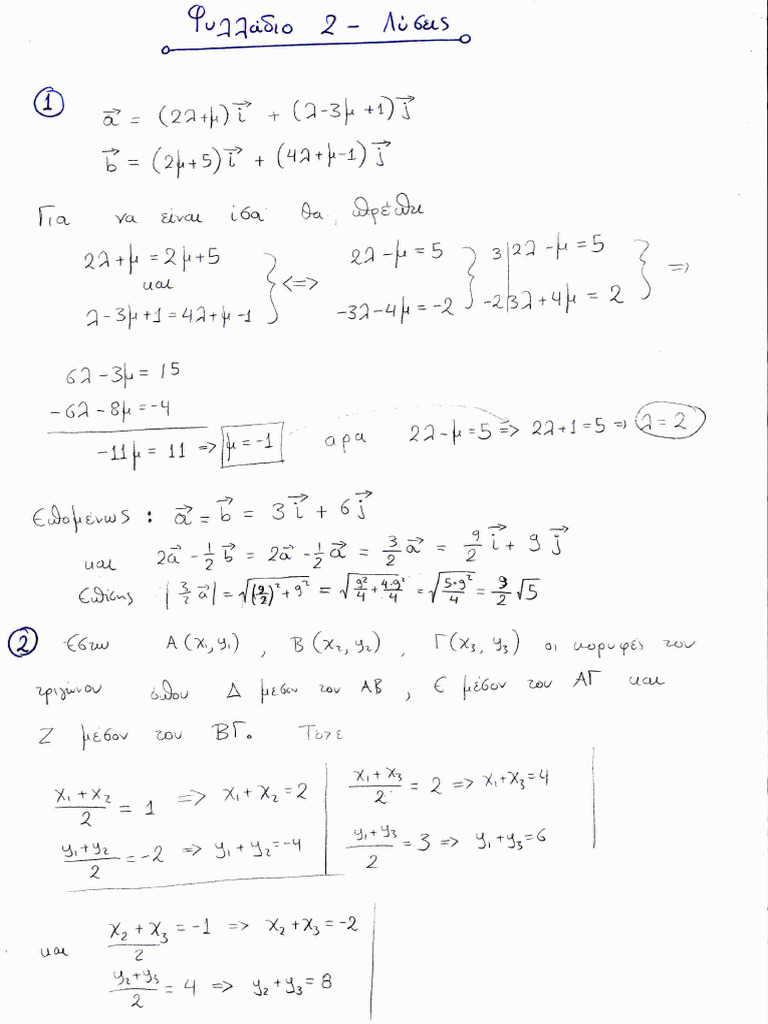 Φυλλάδιο 2 - Λύσεις
① \vec{a} = (2λ+μ)\vec{i} + (λ-3μ+1)\vec{j}
\vec{b} = (2μ+5)\vec{i} + (4λ+μ-1)\vec{j}
Για να είναι ίσα θα πρέπει
2λ+μ = 2μ+5 } <=> 2λ-μ = 5 } 3|2λ-μ = 5 } =>
και
λ-3μ+1 = 4λ+μ-1 -3λ-4μ = -2 -2|3λ+4μ = 2
6λ-3μ = 15
-6λ-8μ = -4
-11μ = 11 => μ = -1 αρα 2λ-μ = 5 => 2λ+1 = 5 => λ = 2
Επομένως : \vec{a} = \vec{b} = 3\vec{i} + 6\vec{j}
και 2\vec{a} - \frac{1}{2}\vec{b} = 2\vec{a} - \frac{1}{2}\vec{a} = \frac{3}{2}\vec{a} = \frac{9}{2}\vec{i} + 9\vec{j}
Επίσης |\frac{3}{2}\vec{a}| = \sqrt{(\frac{9}{2})^2 + 9^2} = \sqrt{\frac{9^2}{4} + \frac{4·9^2}{4}} = \sqrt{\frac{5·9^2}{4}} = \frac{9}{2}\sqrt{5}
② Έστω A(x₁,y₁) , B(x₂,y₂) , Γ(x₃,y₃) οι κορυφές του
τριγώνου όπου Δ μεσον του ΑΒ , Ε μέσον του ΑΓ και
Ζ μέσον του ΒΓ. Τότε
\frac{x₁+x₂}{2} = 1 => x₁+x₂ = 2 | \frac{x₁+x₃}{2} = 2 => x₁+x₃ = 4
\frac{y₁+y₂}{2} = -2 => y₁+y₂ = -4 | \frac{y₁+y₃}{2} = 3 => y₁+y₃ = 6
και \frac{x₂+x₃}{2} = -1 => x₂+x₃ = -2
\frac{y₂+y₃}{2} = 4 => y₂+y₃ = 8